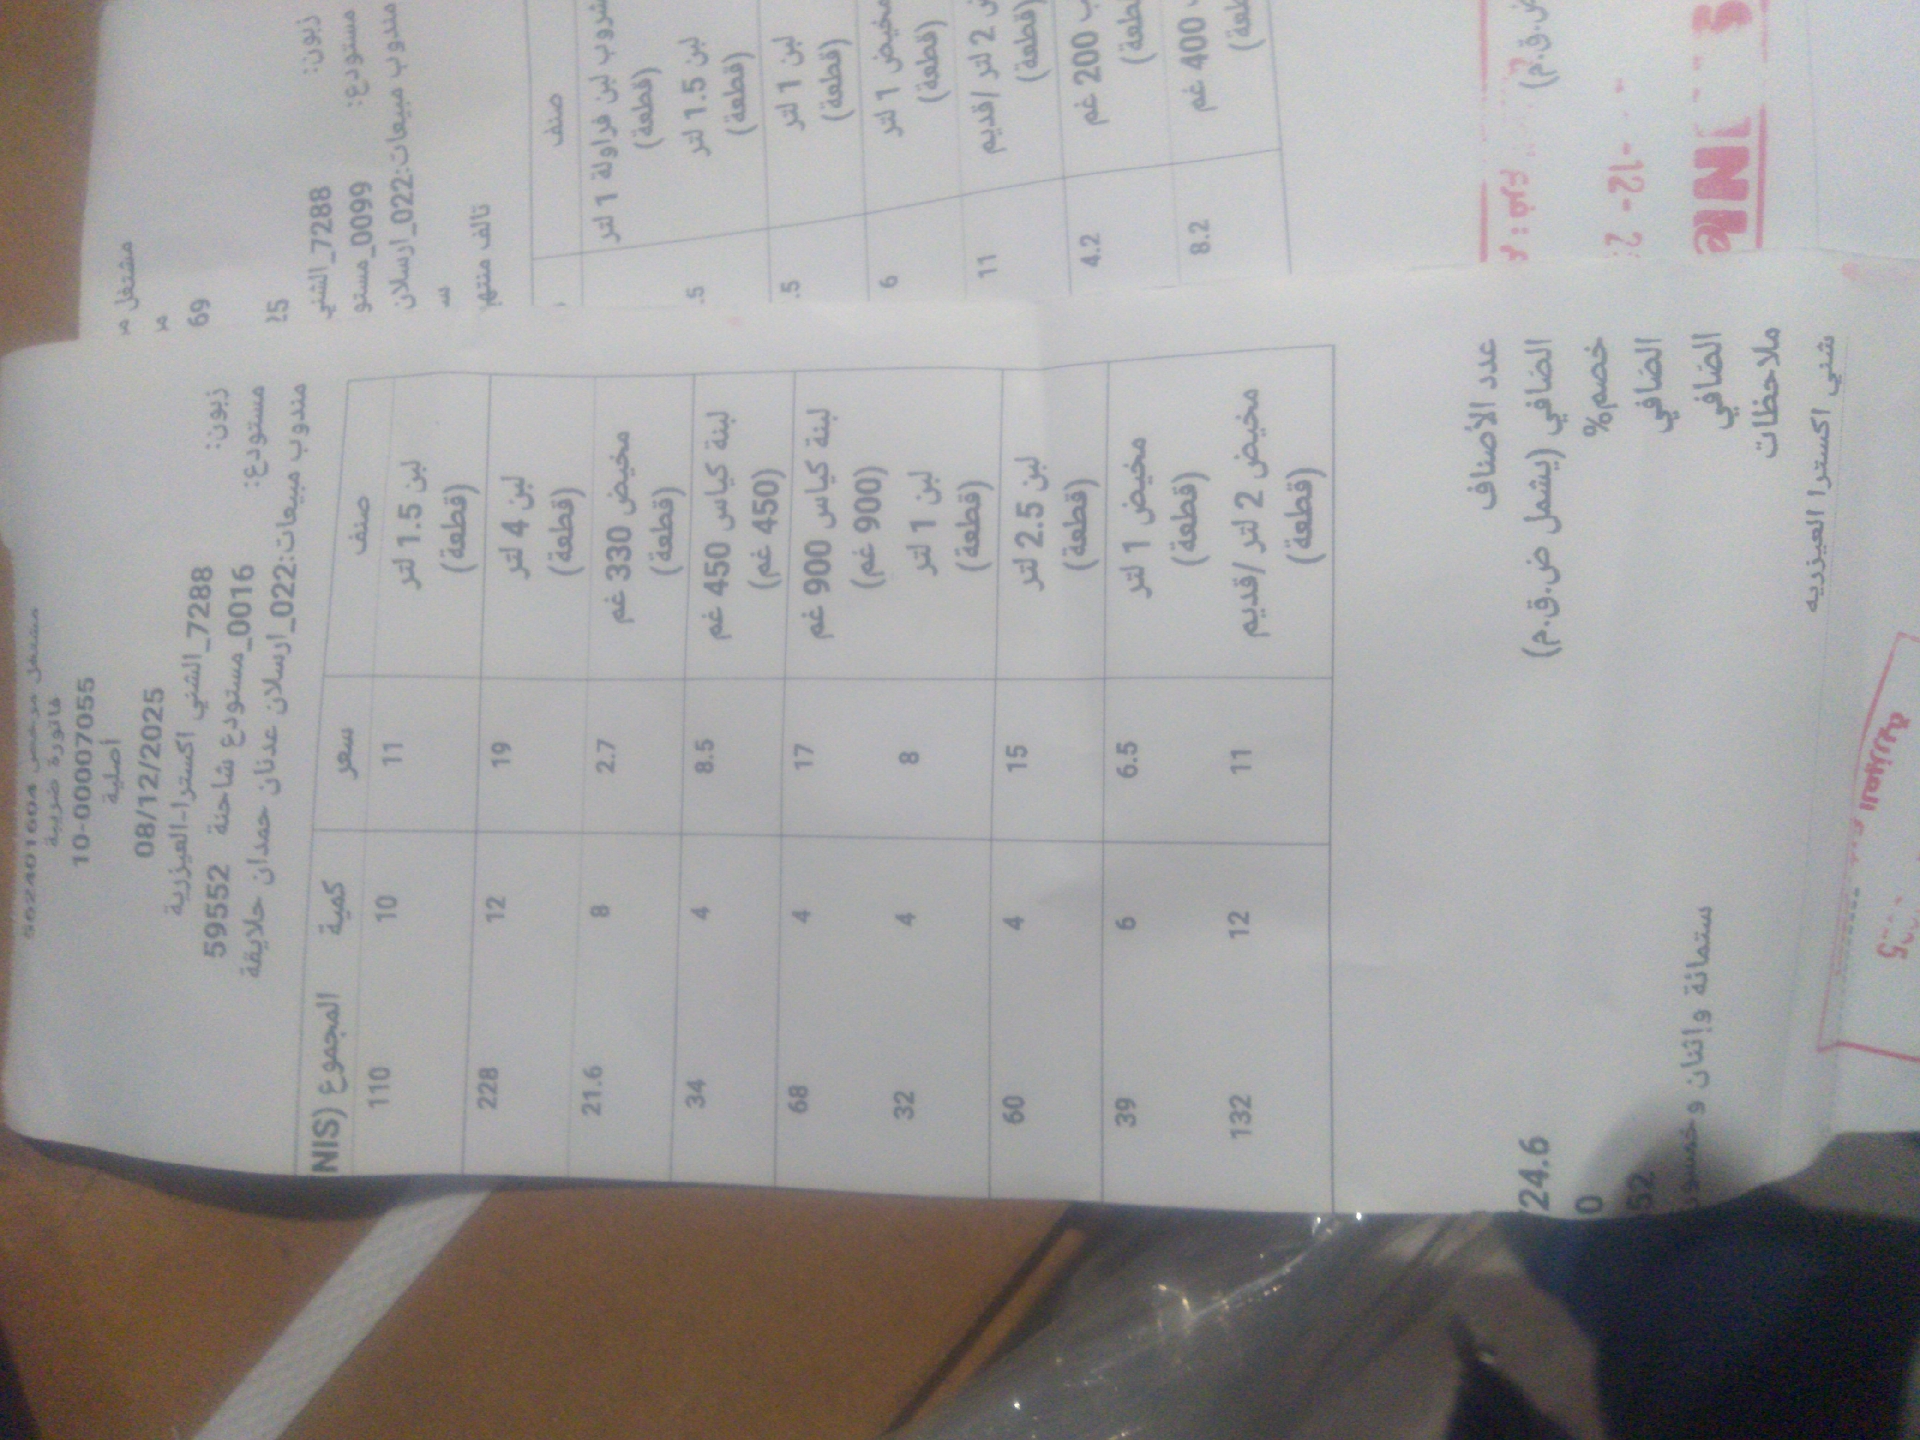 مشتغل مرخص 562401604
فاتورة ضريبة
10-00007055
اصلية
08/12/2025
زبون: 7288_الشني اكسترا-العيزرية
مستودع: 0016_مستودع شاحنة 59552
مندوب مبيعات:022_ارسلان عدنان حمدان حلايقة
صنف سعر كمية المجموع (NIS
لبن 1.5 لتر 11 10 110
(قطعة)
لبن 4 لتر 19 12 228
(قطعة)
مخيض 330 غم 2.7 8 21.6
(قطعة)
لبنة كياس 450 غم 8.5 4 34
(450 غم)
لبنة كياس 900 غم 17 4 68
(900 غم)
لبن 1 لتر 8 4 32
(قطعة)
لبن 2.5 لتر 15 4 60
(قطعة)
مخيض 1 لتر 6.5 6 39
(قطعة)
مخيض 2 لتر /قديم 11 12 132
(قطعة)
عدد الأصناف
الصافي (يشمل ض.ق.م) 24.6
خصم% 0
الصافي 52
الصافي ستمائة وإثنان وخمسون
ملاحظات
شني اكسترا العيزريه
مشتغل مر
69
25
زبون: 7288_الشني
مستودع: 0099_مستو
مندوب مبيعات:022_ارسلان
تالف منتهي
صنف
شروب لبن فراولة 1 لتر
(قطعة)
لبن 1.5 لتر .5
(قطعة)
لبن 1 لتر .5
(قطعة)
مخيض 1 لتر 6
(قطعة)
2 لتر /قديم 11
(قطعة)
200 غم 4.2
(قطعة)
400 غم 8.2
ض.ق.م)
12-